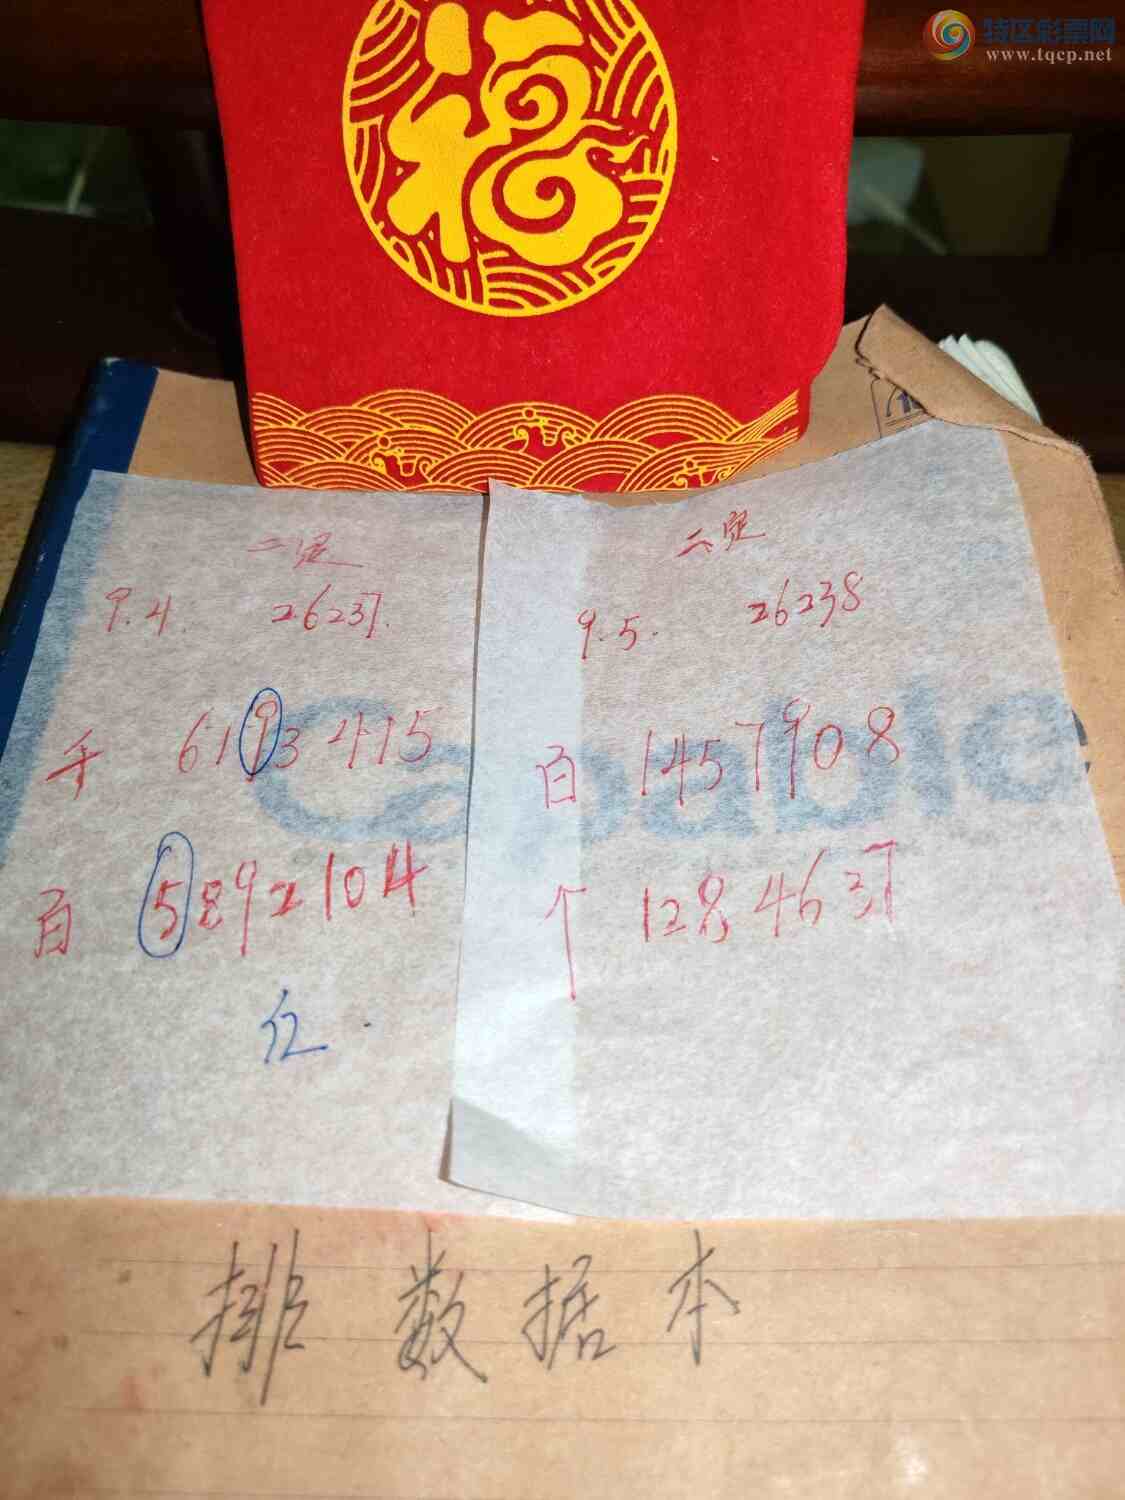 特区彩票网
www.tqcp.net
福
二定
9.4. 26237.
千 6193415
百 5892104
红.
二定
9.5. 26238
百 1457908
个 1284637
Capable
排数据本